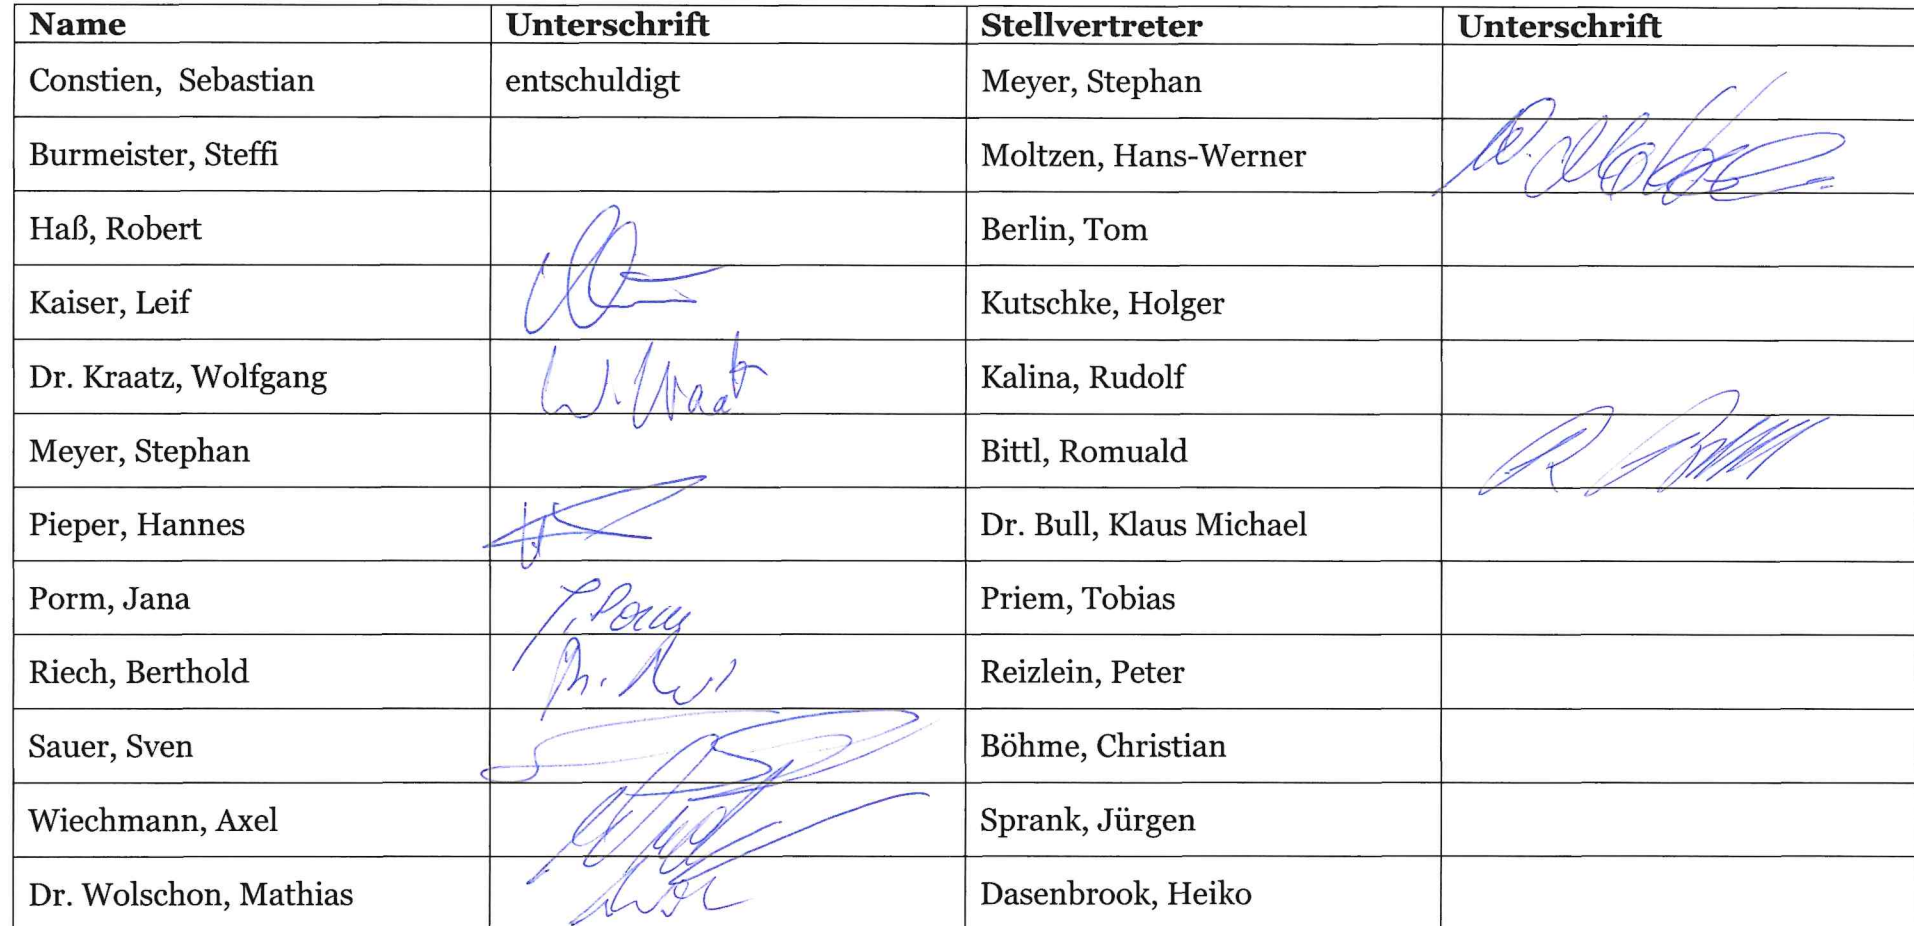 Name Unterschrift Stellvertreter Unterschrift
Constien, Sebastian entschuldigt Meyer, Stephan
Burmeister, Steffi Moltzen, Hans-Werner
Haß, Robert Berlin, Tom
Kaiser, Leif Kutschke, Holger
Dr. Kraatz, Wolfgang W. Kraatz Kalina, Rudolf
Meyer, Stephan Bittl, Romuald
Pieper, Hannes Dr. Bull, Klaus Michael
Porm, Jana J. Porm Priem, Tobias
Riech, Berthold Reizlein, Peter
Sauer, Sven Böhme, Christian
Wiechmann, Axel Sprank, Jürgen
Dr. Wolschon, Mathias Dasenbrook, Heiko